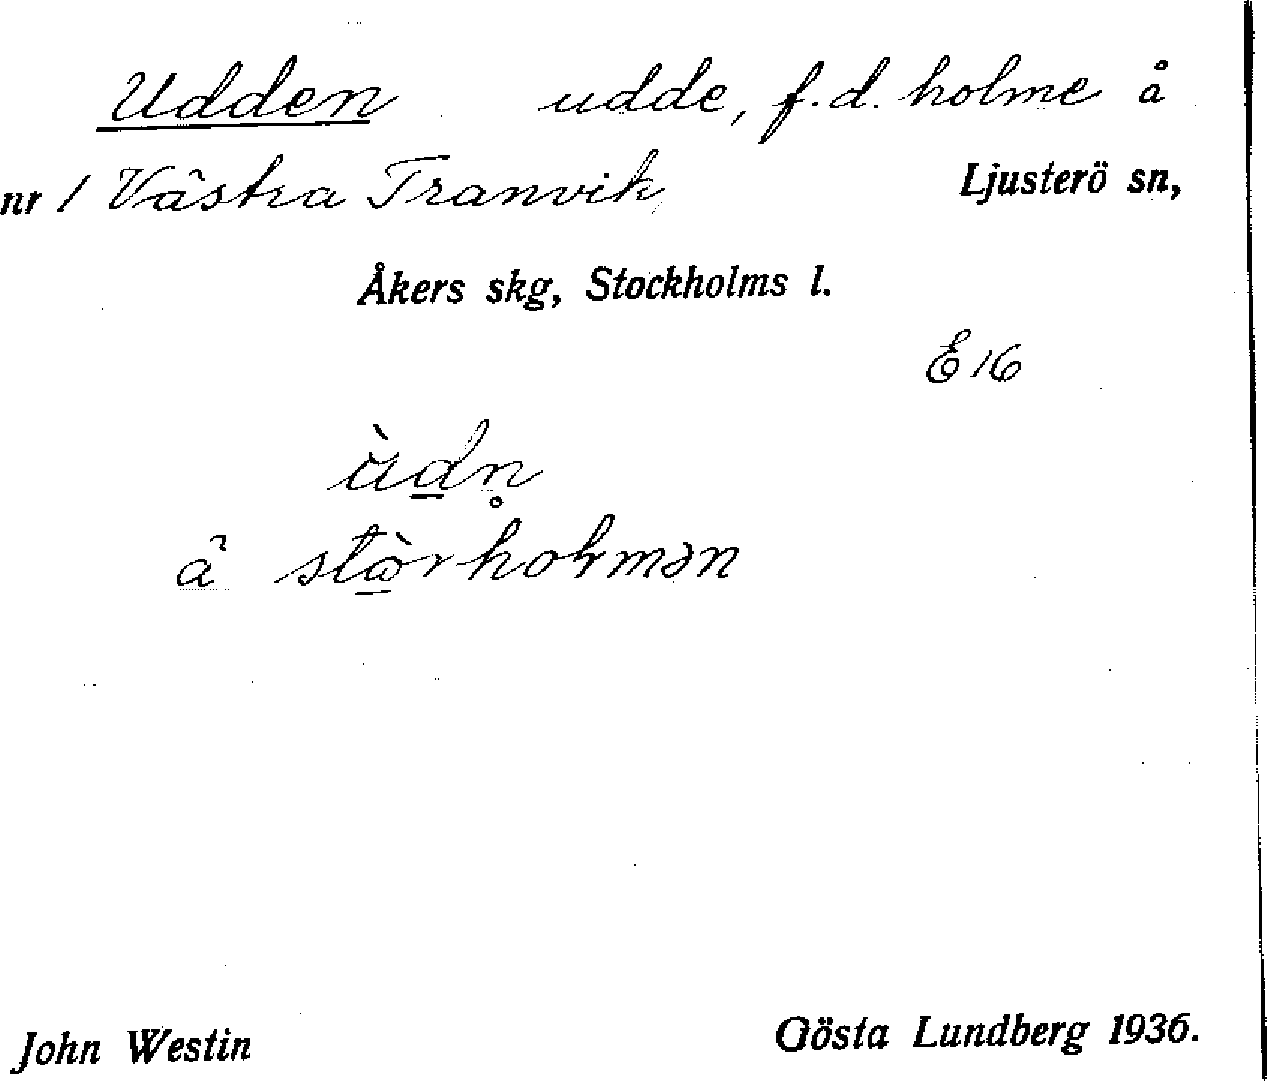 Udden udde, f.d. holme å
nr 1 Västra Tranvik, Ljusterö sn,
Åkers skg, Stockholms l.
E 16
ùd̲n̥
John Westin Gösta Lundberg 1936.